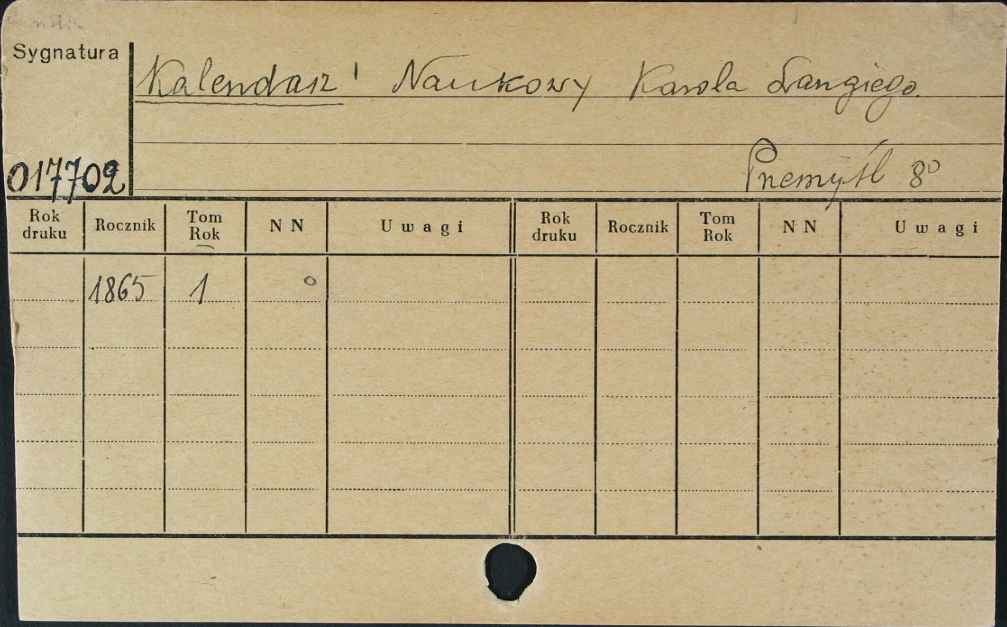 Sygnatura
Kalendarz Naukowy Karola Langiego.
Przemyśl 8°
017702
Rok druku Rocznik Tom Rok NN Uwagi Rok druku Rocznik Tom Rok NN Uwagi
1865 1